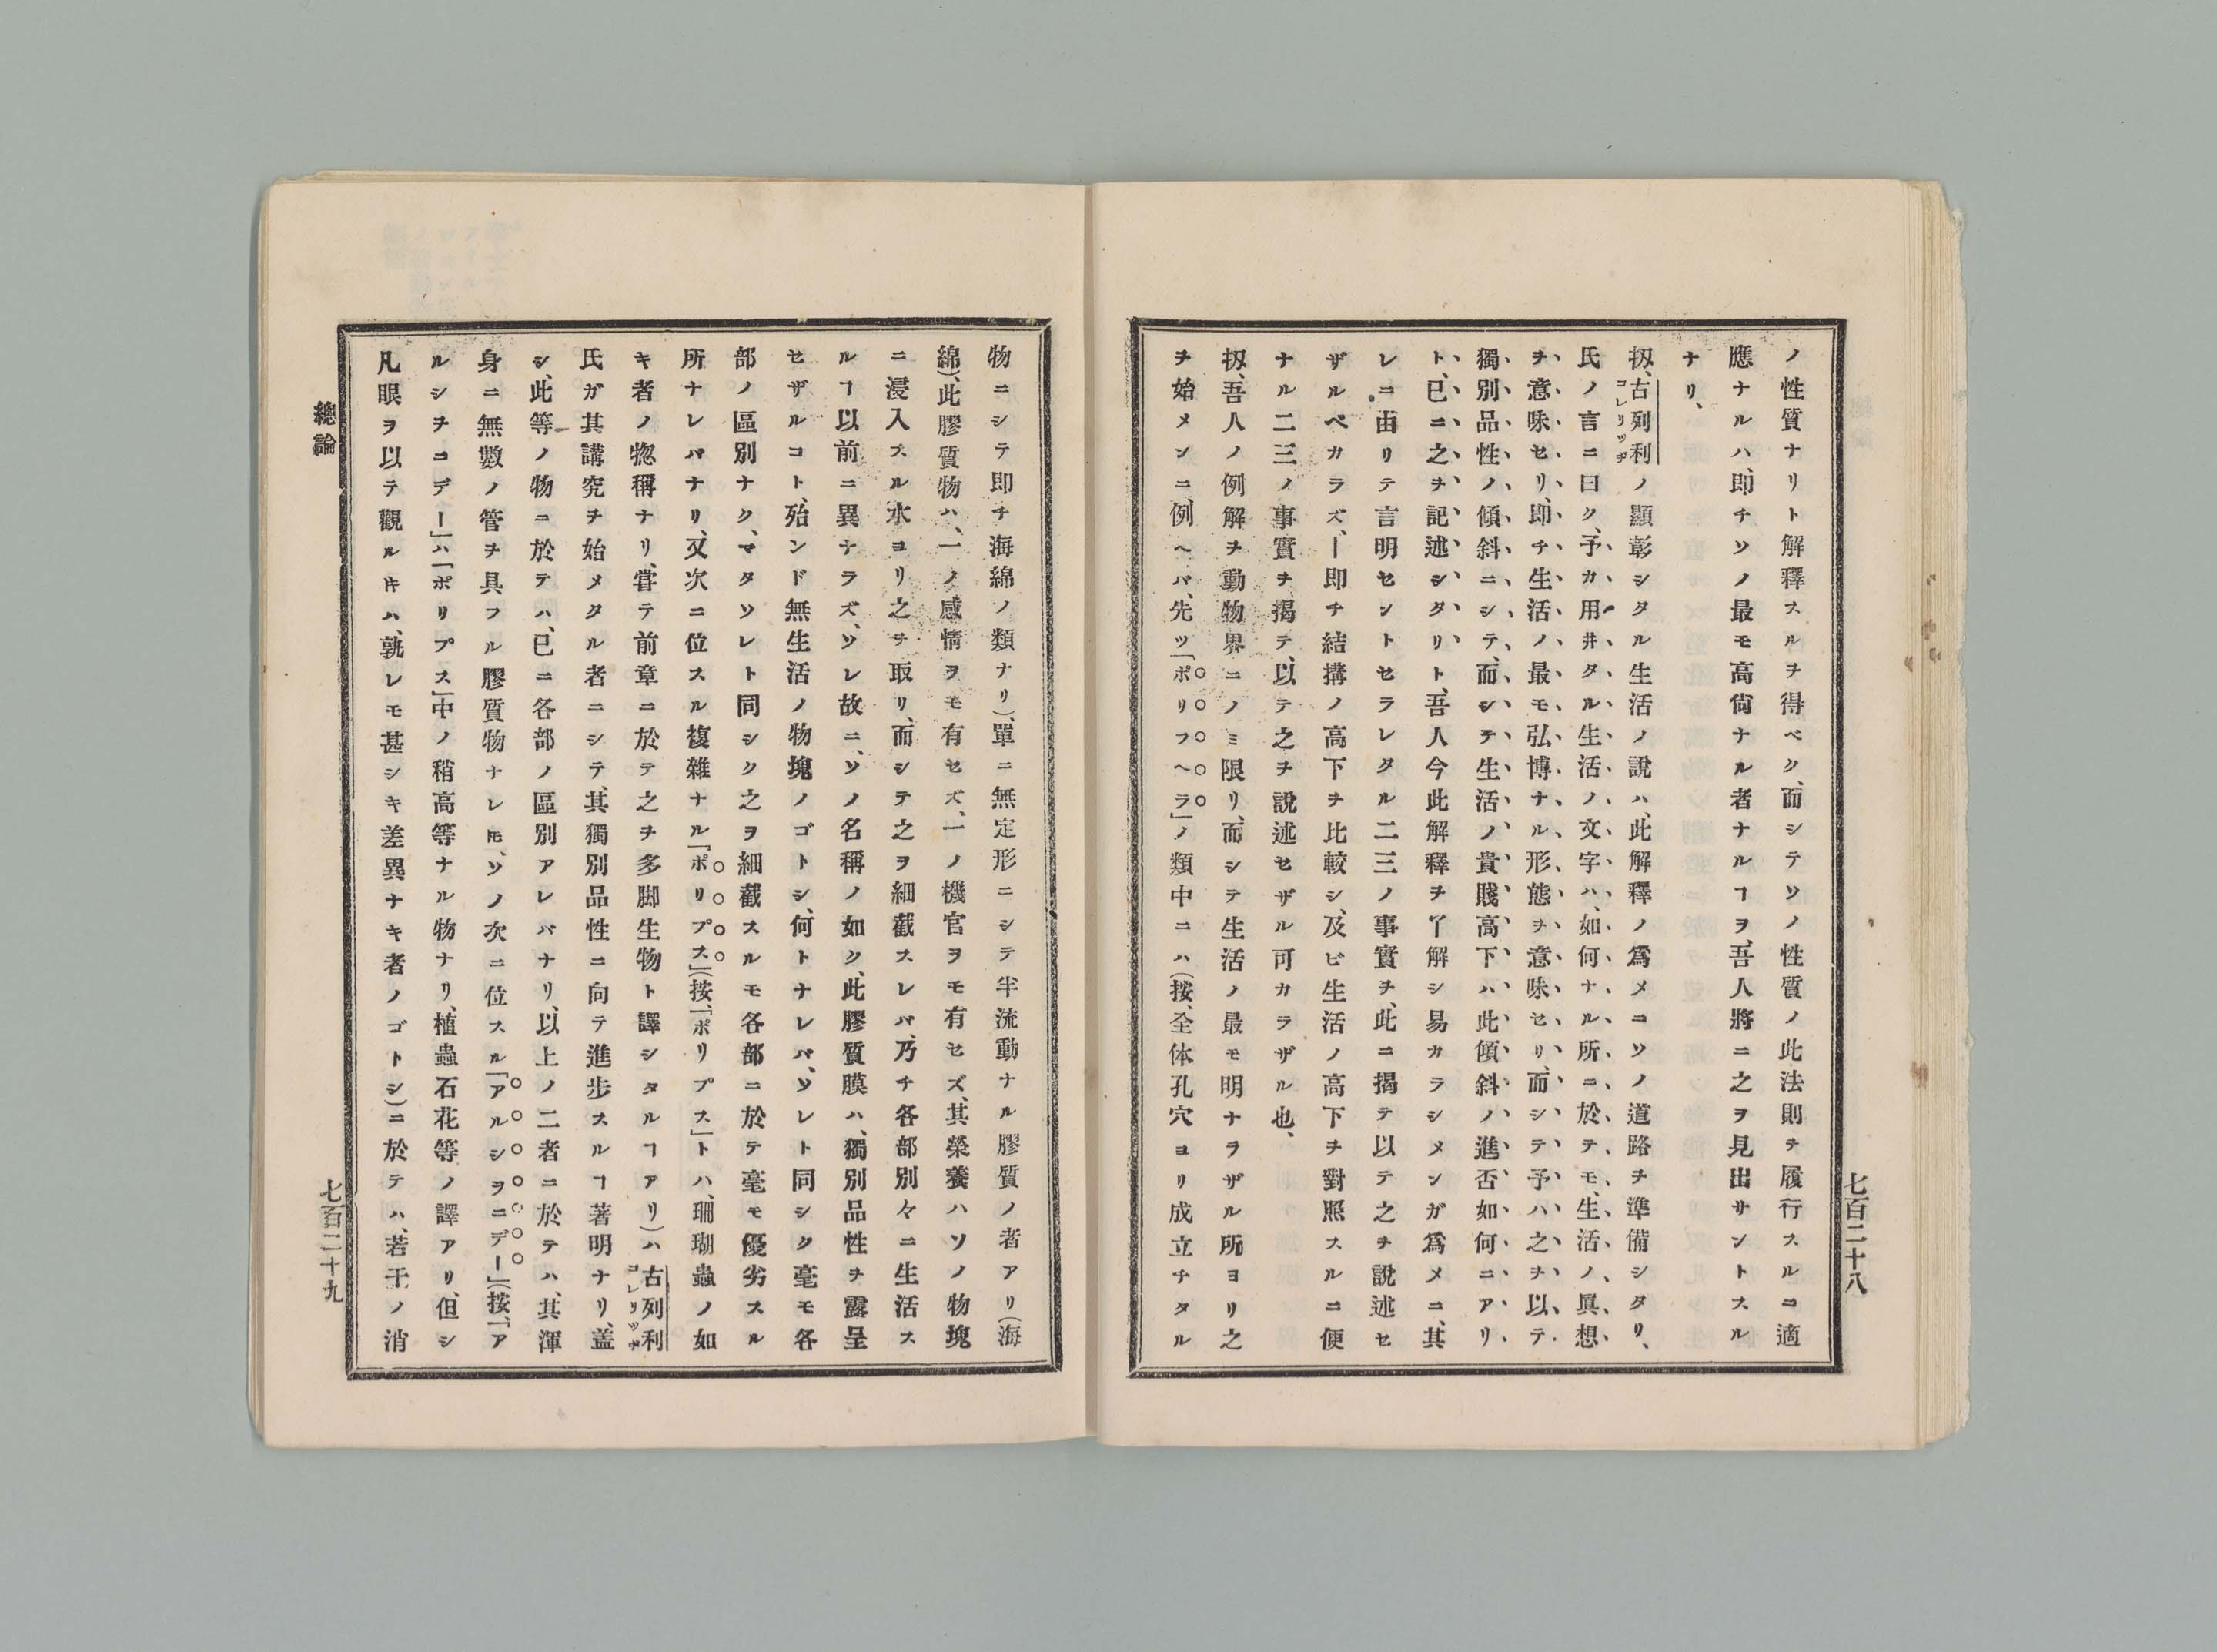 ノ性質ナリト解釋スルヲ得ベク、而シテソノ性質ノ此法則ヲ履行スルコ適
應ナルハ、即チソノ最モ高尙ナル者ナルヿヲ、吾人將ニ之ヲ見出サントスル
ナリ、
扨、古列利ノ顯彰シタル生活ノ說ハ、此解釋ノ爲メニソノ道路ヲ準備シタリ、
コレリッヂ
氏ノ言ニ曰ク、予カ用井タル生活ノ文字ハ、如何ナル所ニ於テモ、生活ノ眞想
ヲ意味セリ、即チ生活ノ最モ弘博ナル形態ヲ意味セリ、而シテ予ハ之ヲ以テ
獨別品性ノ傾斜ニシテ、而シテ生活ノ貴賤高下ハ此傾斜ノ進否如何ニアリ
ト、已ニ之ヲ記述シタリト、吾人今此解釋ヲ了解シ易カラシメンガ爲メニ、其
レニ由リテ言明セントセラレタル二三ノ事實ヲ、此ニ揭テ以テ之ヲ說述セ
ザルベカラズ、ー即チ結搆ノ高下ヲ比較シ、及ビ生活ノ高下ヲ對照スルニ便
ナル二三ノ事實ヲ揭テ、以テ之ヲ說述セザル可カラザル也、
扨、吾人ノ例解ヲ動物界ニノミ限リ、而シテ生活ノ最モ明ナラザル所ヨリ之
ヲ始メンニ、例ヘバ、先ヅ「ポリフヘラ」ノ類中ニハ(按、全体孔穴ヨリ成立チタル
七百二十八
物ニシテ即チ海綿ノ類ナリ)、單ニ無定形ニシテ半流動ナル膠質ノ者アリ(海
綿)、此膠質物ハ、一ノ感情ヲモ有セズ、一ノ機官ヲモ有セズ、其榮養ハソノ物塊
ニ浸入スル水ヨリ之ヲ取リ、而シテ之ヲ細截スレバ、乃チ各部別々ニ生活ス
ルヿ以前ニ異ナラズ、ソレ故ニ、ソノ名稱ノ如ク、此膠質膜ハ、獨別品性ヲ露呈
セザルコト、殆ンド無生活ノ物塊ノゴトシ、何トナレバ、ソレト同シク毫モ各
部ノ區別ナク、マタソレト同シク之ヲ細截スルモ各部ニ於テ毫モ優劣スル
所ナレバナリ、又次ニ位スル複雜ナル「ポリプス」(按、「ポリプス」トハ、珊瑚蟲ノ如
キ者ノ惣稱ナリ、甞テ前章ニ於テ之ヲ多脚生物ト譯シタルヿアリ)ハ古列利
コレリッヂ
氏ガ其講究ヲ始メタル者ニシテ、其獨別品性ニ向テ進步スルヿ著明ナリ、盖
シ、此等ノ物ニ於テハ、已ニ各部ノ區別アレバナリ、以上ノ二者ニ於テハ、其渾
身ニ無數ノ管ヲ具フル膠質物ナレ𪜈、ソノ次ニ位スル「アルシヲニデー」(按、「ア
ルシヲニデー」ハ「ポリプス」中ノ稍高等ナル物ナリ、植蟲石花等ノ譯アリ、但シ
凡眼ヲ以テ觀ルトキハ、孰レモ甚シキ差異ナキ者ノゴトシ)ニ於テハ、若干ノ消
總論
七百二十九